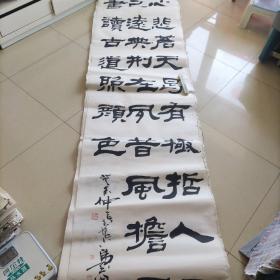 心悲蒼天曷有極哲人
遠典荆在夙昔風檐
書讀古道照顏色
癸未仲